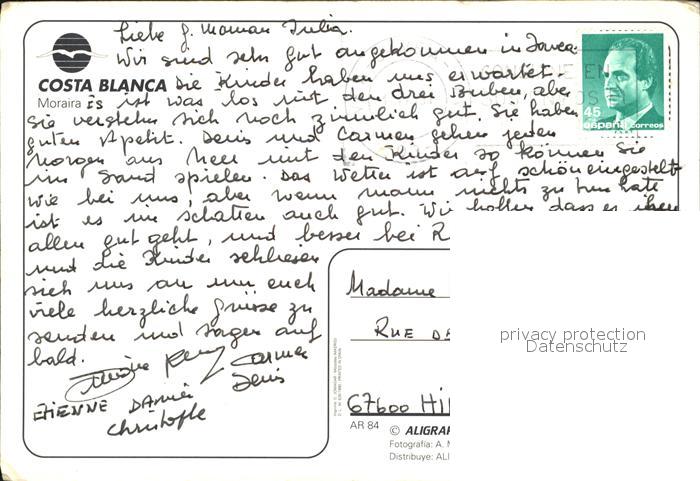 Liebe g. Maman Julia.
Wir sind sehr gut angekommen in Javea
COSTA BLANCA Die Kinder haben uns erwartet.
Moraira Es ist was los mit den drei Buben, aber
Sie verstehn sich noch zimmlich gut. Sie haben
guten Apetit. Denis und Carmen gehen jeden
Morgen ans Meer mit den Kinder so können Sie
im Sand spielen. Das Wetter ist auf schön eingestelt
wie bei uns, aber wenn mann nichts zu tun hate
ist es im schatten auch gut. Wir hoffen dass es ihen
allen gut geht, und besser bei R
und die Kinder schliesen
sich uns an um euch
viele herzliche grüsse zu
senden und sagen auf
bald.
Remy Carmen
Denis
ETIENNE Daniel
Christophe
45
españa correos
Madame
RUE
67600 Hi
AR 84 © ALIGRAF
Fotografía: A. M
Distribuye: ALI
privacy protection
Datenschutz